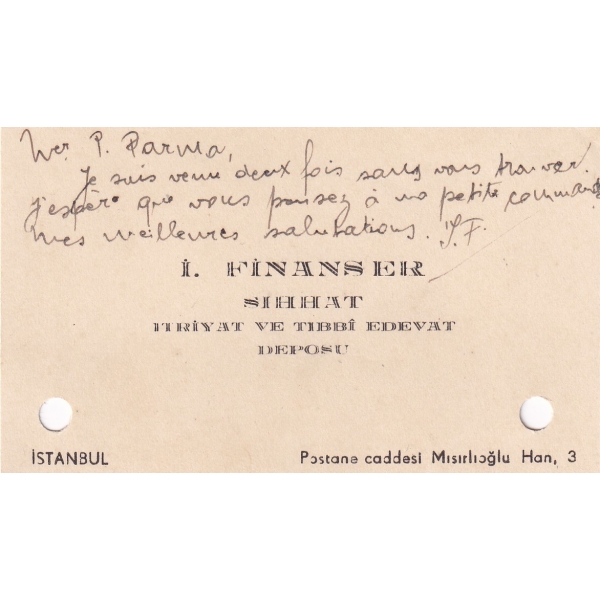 Mer P. Parma,
Je suis venu deux fois sans vous trouver.
J'espère que vous pensez à ma petite commande
mes meilleures salutations. I.F.
İ. FİNANSER
SIHHAT
ITRİYAT VE TIBBÎ EDEVAT
DEPOSU
İSTANBUL
Postane caddesi Mısırlıoğlu Han, 3